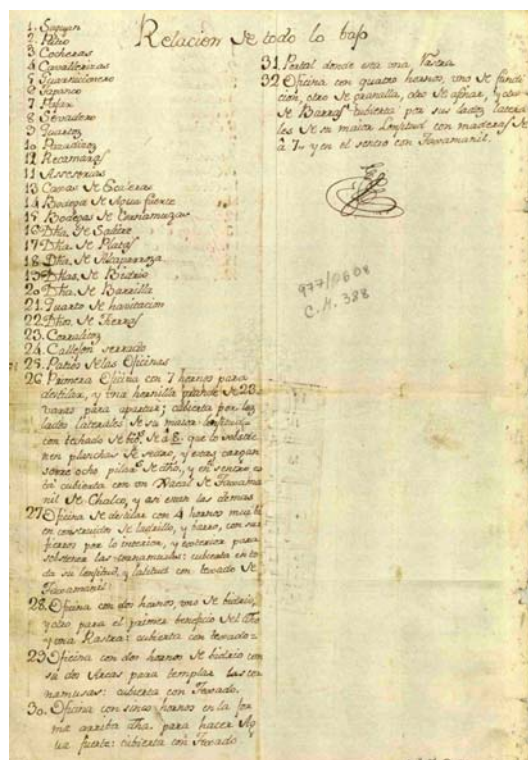 Relacion de todo lo bajo
1. Saguan
2. Patio
3 Cocheras
4 Cavallerizas
5 Guarnicionero
6 Tapanco
7 Pajar
8 Sevadero
9 Quartos
10 Paradizos
12 Recamaras
11 Assesorias
13 Caxas de Escaleras
14 Bodega de Agua fuerte
15 Bodegas de Cornamuzas
16 Dha. de Salitre
17 Dha. de Platas
18 Dha. de Alcaparroza
19 Dhas. de Bidrio
20 Dha. de Barrilla
21. Quarto de havitacion
22 Dhos. de Fierros
23. Corralizos
24. Callejon serrado
25. Patios de las Oficinas
26 Primera Oficina con 7 hornos para
destilar, y una hornilla grande de 23
varas para apartar; cubierta por los
lados laterales de su maior lonjitud
con techado de que lo
nen planchas de sedro, y estas cargan
sobre ocho pilares de dha., y en sentro es
ta cubierta con un de Tavama
nil de Chalco, y asi estan las demas
27 Oficina de destilar con 4 hornos mui bi
en construidos de ladrillo, y barro, con sus
fierros por lo interior, y exterior para
sobstener las cornamuzas: cubierta en to
da su lonjitud, y latitud con texado de
Tavamanil:
28. Oficina con dos hornos, uno de bidrio,
y otro para el primer beneficio del dho
y una Rastra: cubierta con texado=
29 Oficina con dos hornos de bidrio con
sus dos Arcas para templar las cor
namusas: cubierta con Texado.
30. Oficina con sinco hornos en la for
ma arriba dha. para hacer Ag
ua fuerte: cubierta con Texado
31. Portal donde esta una Rastra
32 Oficina con quatro hornos, uno de fundi
cion, otro de granalla, otro de afinar, y
de Barras cubierta por sus lados latera
les de su maior Lonjitud con maderas de
à 7, y en el sentro con Tavamanil.
977/0608
C.M. 388